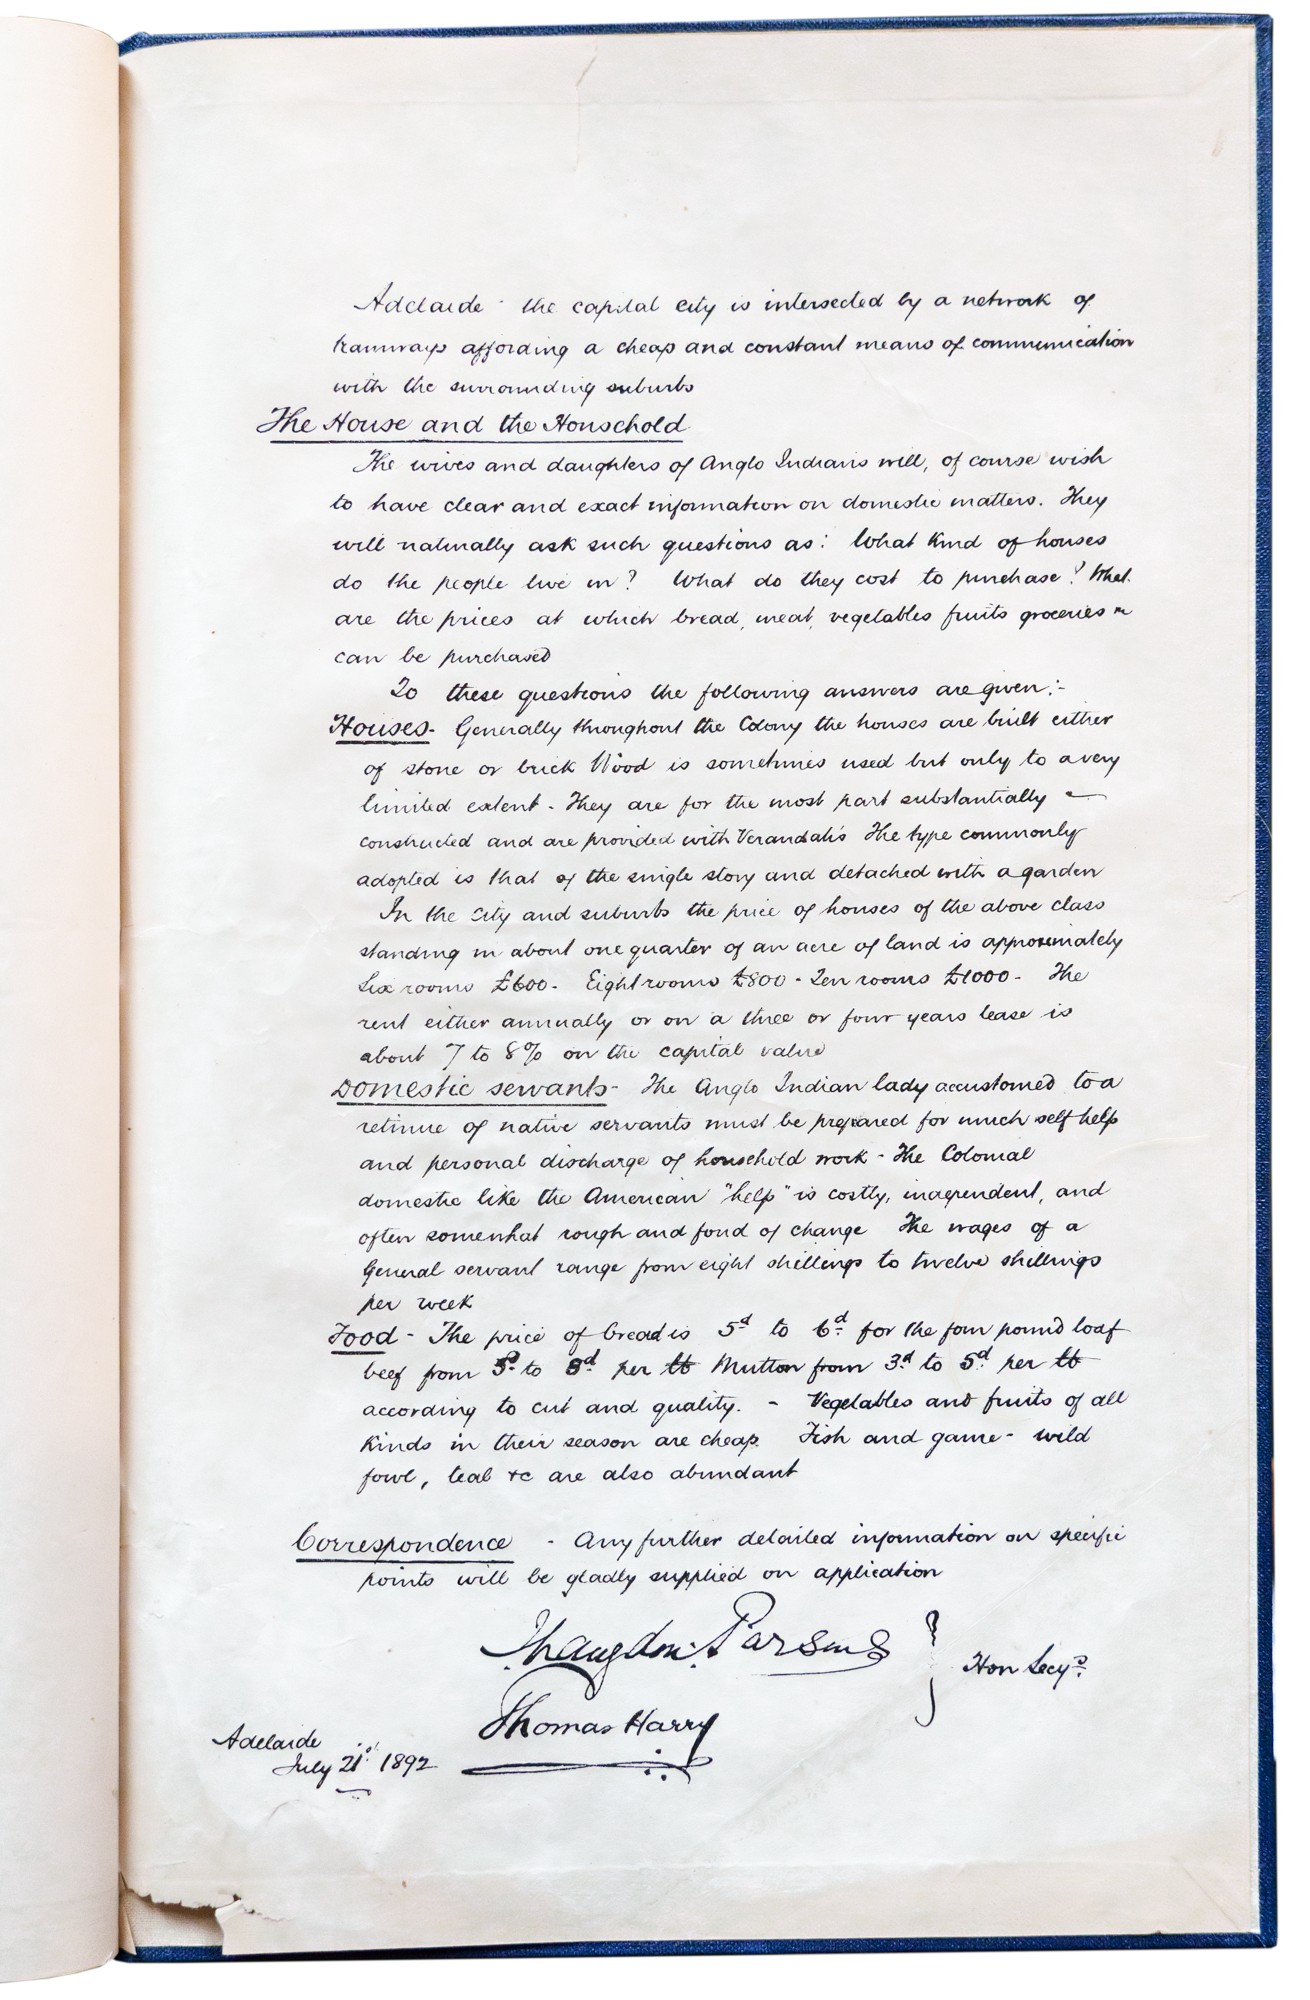 Adelaide - the capital city is intersected by a network of
tramways affording a cheap and constant means of communication
with the surrounding suburbs
The House and the Household
The wives and daughters of Anglo Indians will, of course wish
to have clear and exact information on domestic matters. They
will naturally ask such questions as: What kind of houses
do the people live in? What do they cost to purchase? What
are the prices at which bread, meat, vegetables fruits groceries
can be purchased
To these questions the following answers are given:-
Houses- Generally throughout the Colony the houses are built either
of stone or brick Wood is sometimes used but only to a very
limited extent - They are for the most part substantially
constructed and are provided with Verandah's The type commonly
adopted is that of the single story and detached with a garden
In the City and suburbs the price of houses of the above class
standing in about one quarter of an acre of land is approximately
Six rooms £600 - Eight rooms £800 - Ten rooms £1000 - The
rent either annually or on a three or four years lease is
about 7 to 8% on the capital value
Domestic servants - The Anglo Indian lady accustomed to a
retinue of native servants must be prepared for much self help
and personal discharge of household work - The Colonial
domestic like the American "help" is costly, independent, and
often somewhat rough and fond of change The wages of a
General servant range from eight shillings to twelve shillings
per week
Food - The price of bread is 5d to 6d for the four pound loaf
beef from to 8d per lb Mutton from 3d to 5d per lb
according to cut and quality. - Vegetables and fruits of all
kinds in their season are cheap. Fish and game - wild
fowl, teal &c are also abundant
Correspondence - Any further detailed information on specific
points will be gladly supplied on application
J Langdon Parsons
Hon Secys
Thomas Harry
Adelaide
July 21st 1892